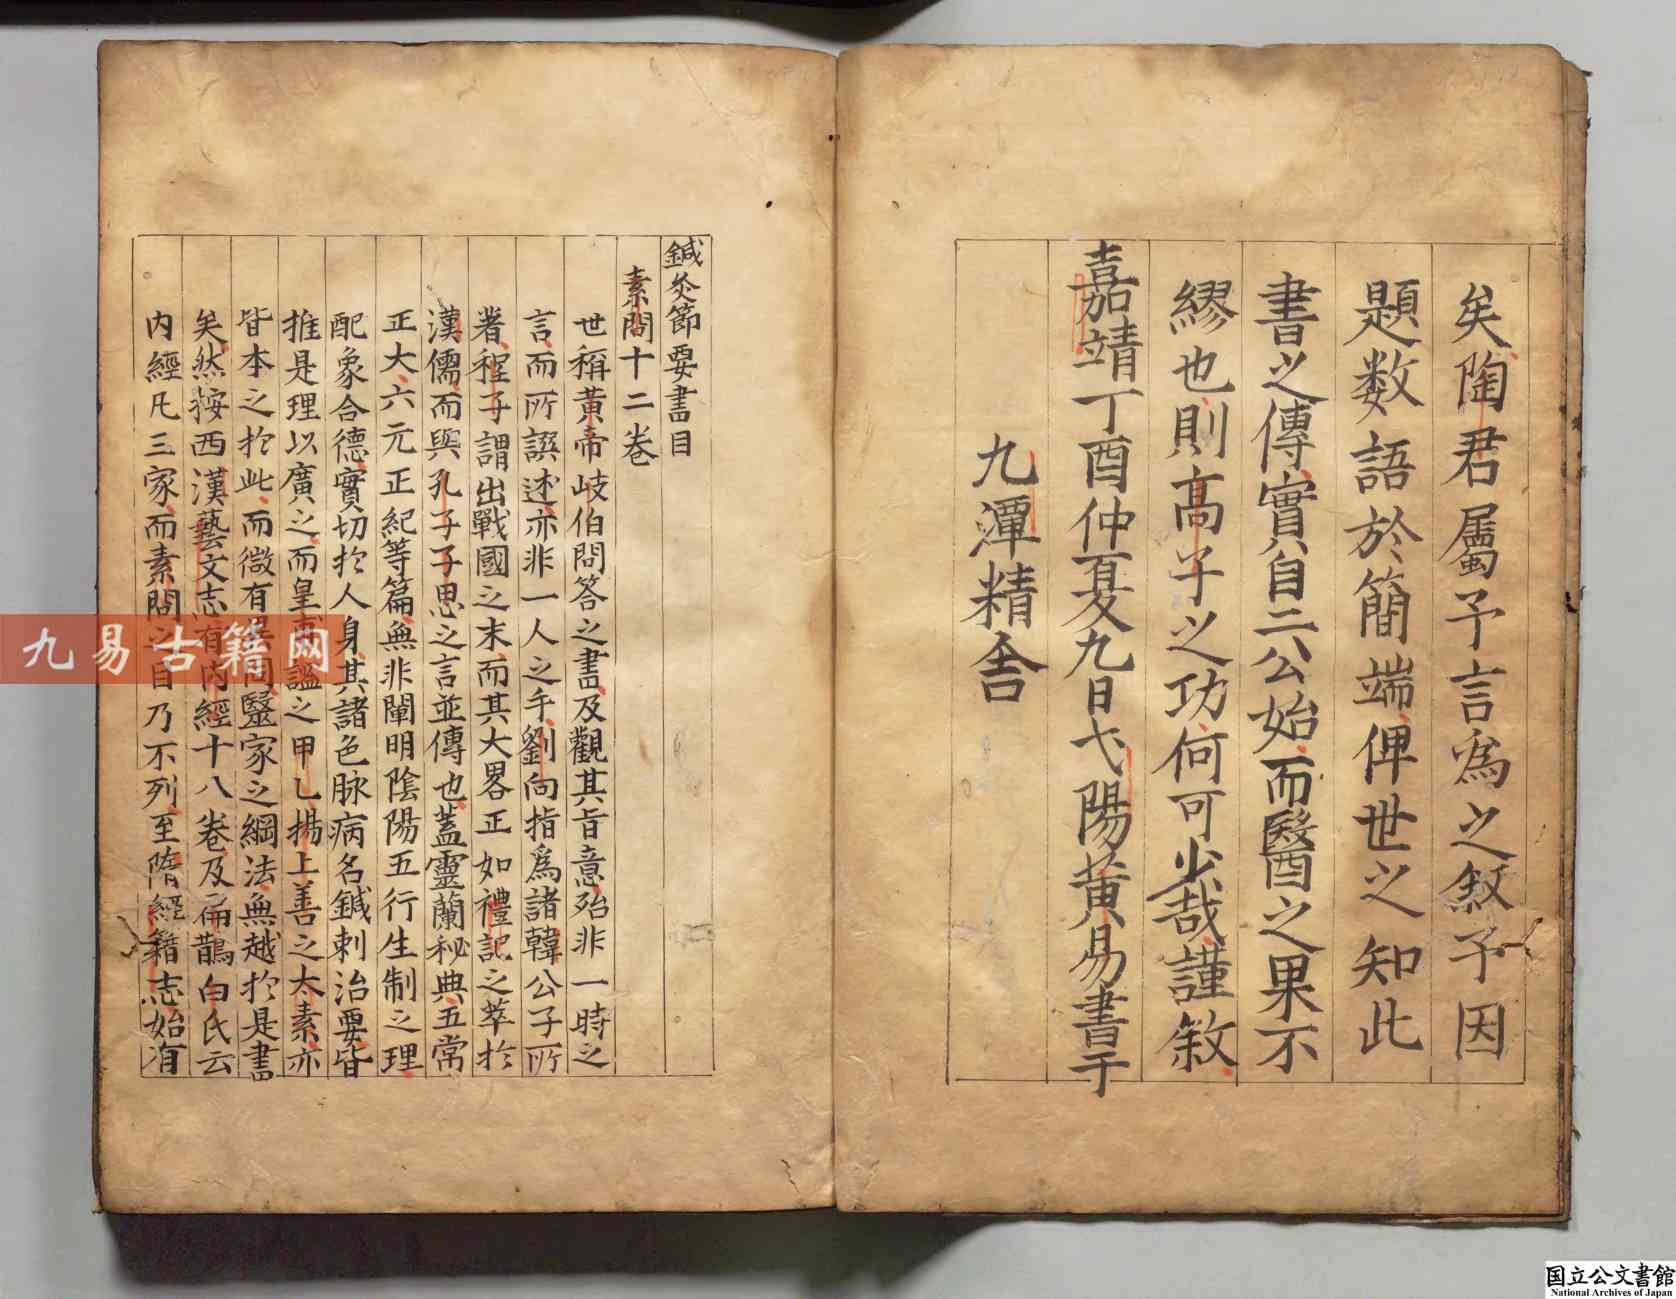 矣陶君屬予言為之敘予因
題数語於簡端俾世之知此
書之傳實自二公始而醫之果不
繆也則髙子之功何可少哉謹敘
嘉靖丁酉仲夏九日弋陽黄易書于
九潭精舍
鍼灸節要書目
素問十二卷
世稱黄帝岐伯問答之書及觀其旨意殆非一時之
言而所譔述亦非一人之手劉向指爲諸韓公子所
著程子謂出戰國之末而其大畧正如禮記之萃扵
漢儒而與孔子子思之言並傳也蓋靈蘭秘典五常
正大六元正紀等篇無非闡明陰陽五行生制之理
配象合德實切扵人身其諸色脉病名鍼刺治要皆
推是理以廣之而皇甫謐之甲乙揚上善之太素亦
皆本之扵此而微有異同醫家之綱法無越扵是書
矣然按西漢藝文志有内經十八卷及扁鵲白氏云
内經凡三家而素問之目乃不列至隋經籍志始有
九易古籍网
国立公文書館
National Archives of Japan